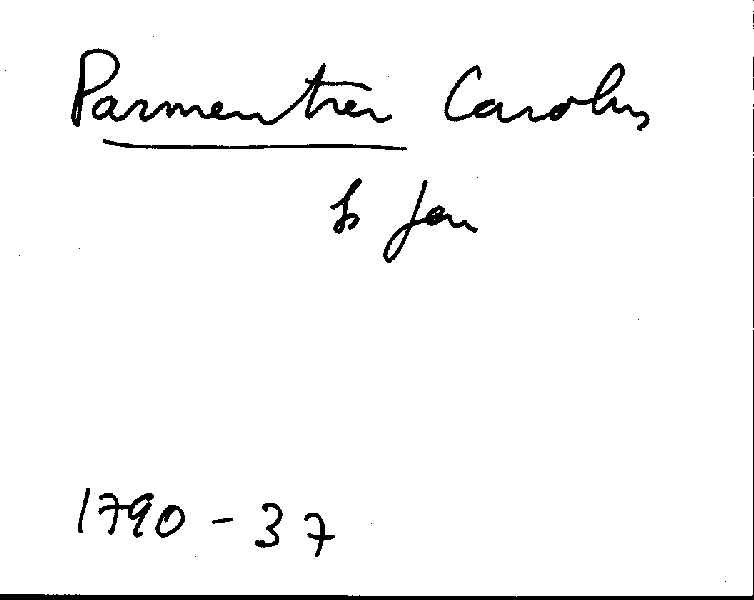 Parmentier Carolus
fs Jan
1790 - 37